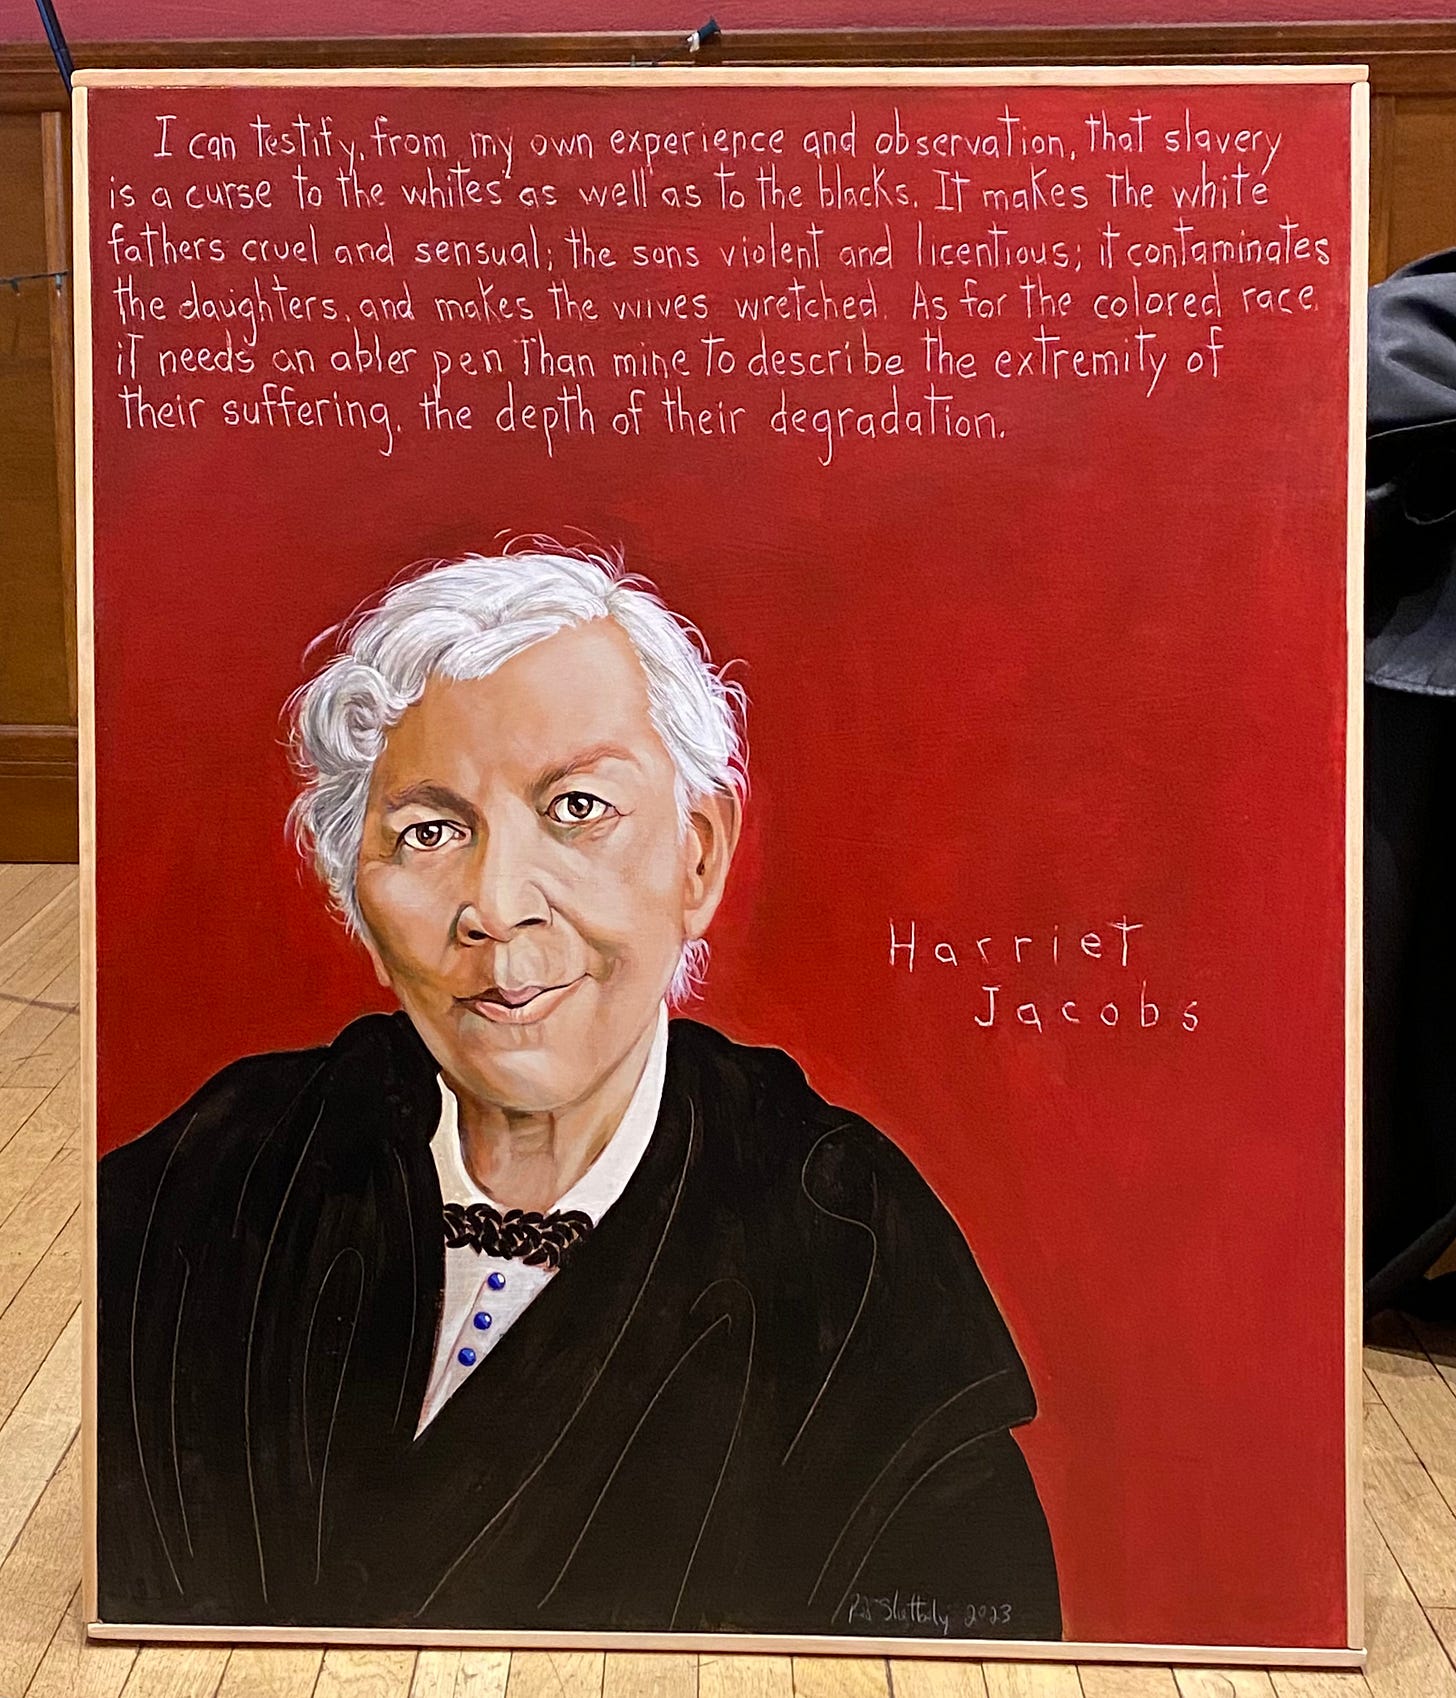 I can testify, from my own experience and observation, that slavery
is a curse to the whites as well as to the blacks. It makes the white
fathers cruel and sensual; the sons violent and licentious; it contaminates
the daughters, and makes the wives wretched. As for the colored race
it needs an abler pen than mine to describe the extremity of
their suffering, the depth of their degradation.
Harriet
Jacobs
2023